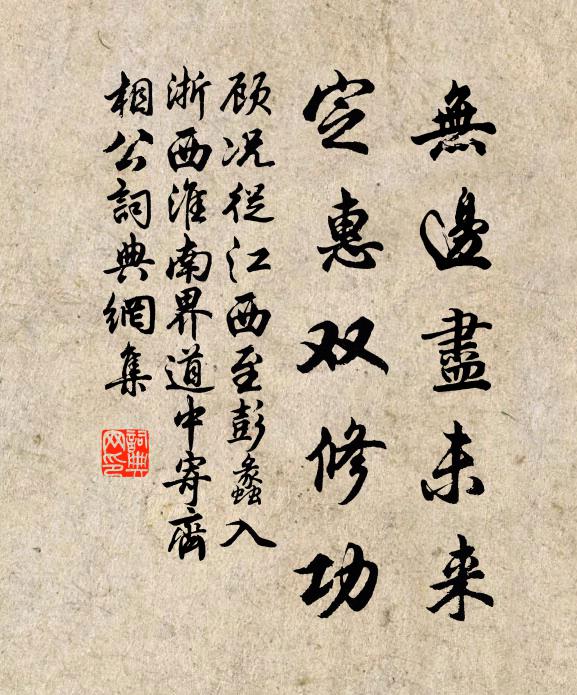 無邊盡未来
定惠双修功
顾况從江西至彭蠡入
浙西淮南界道中寄齊
相公詞典網集
詞典
网印